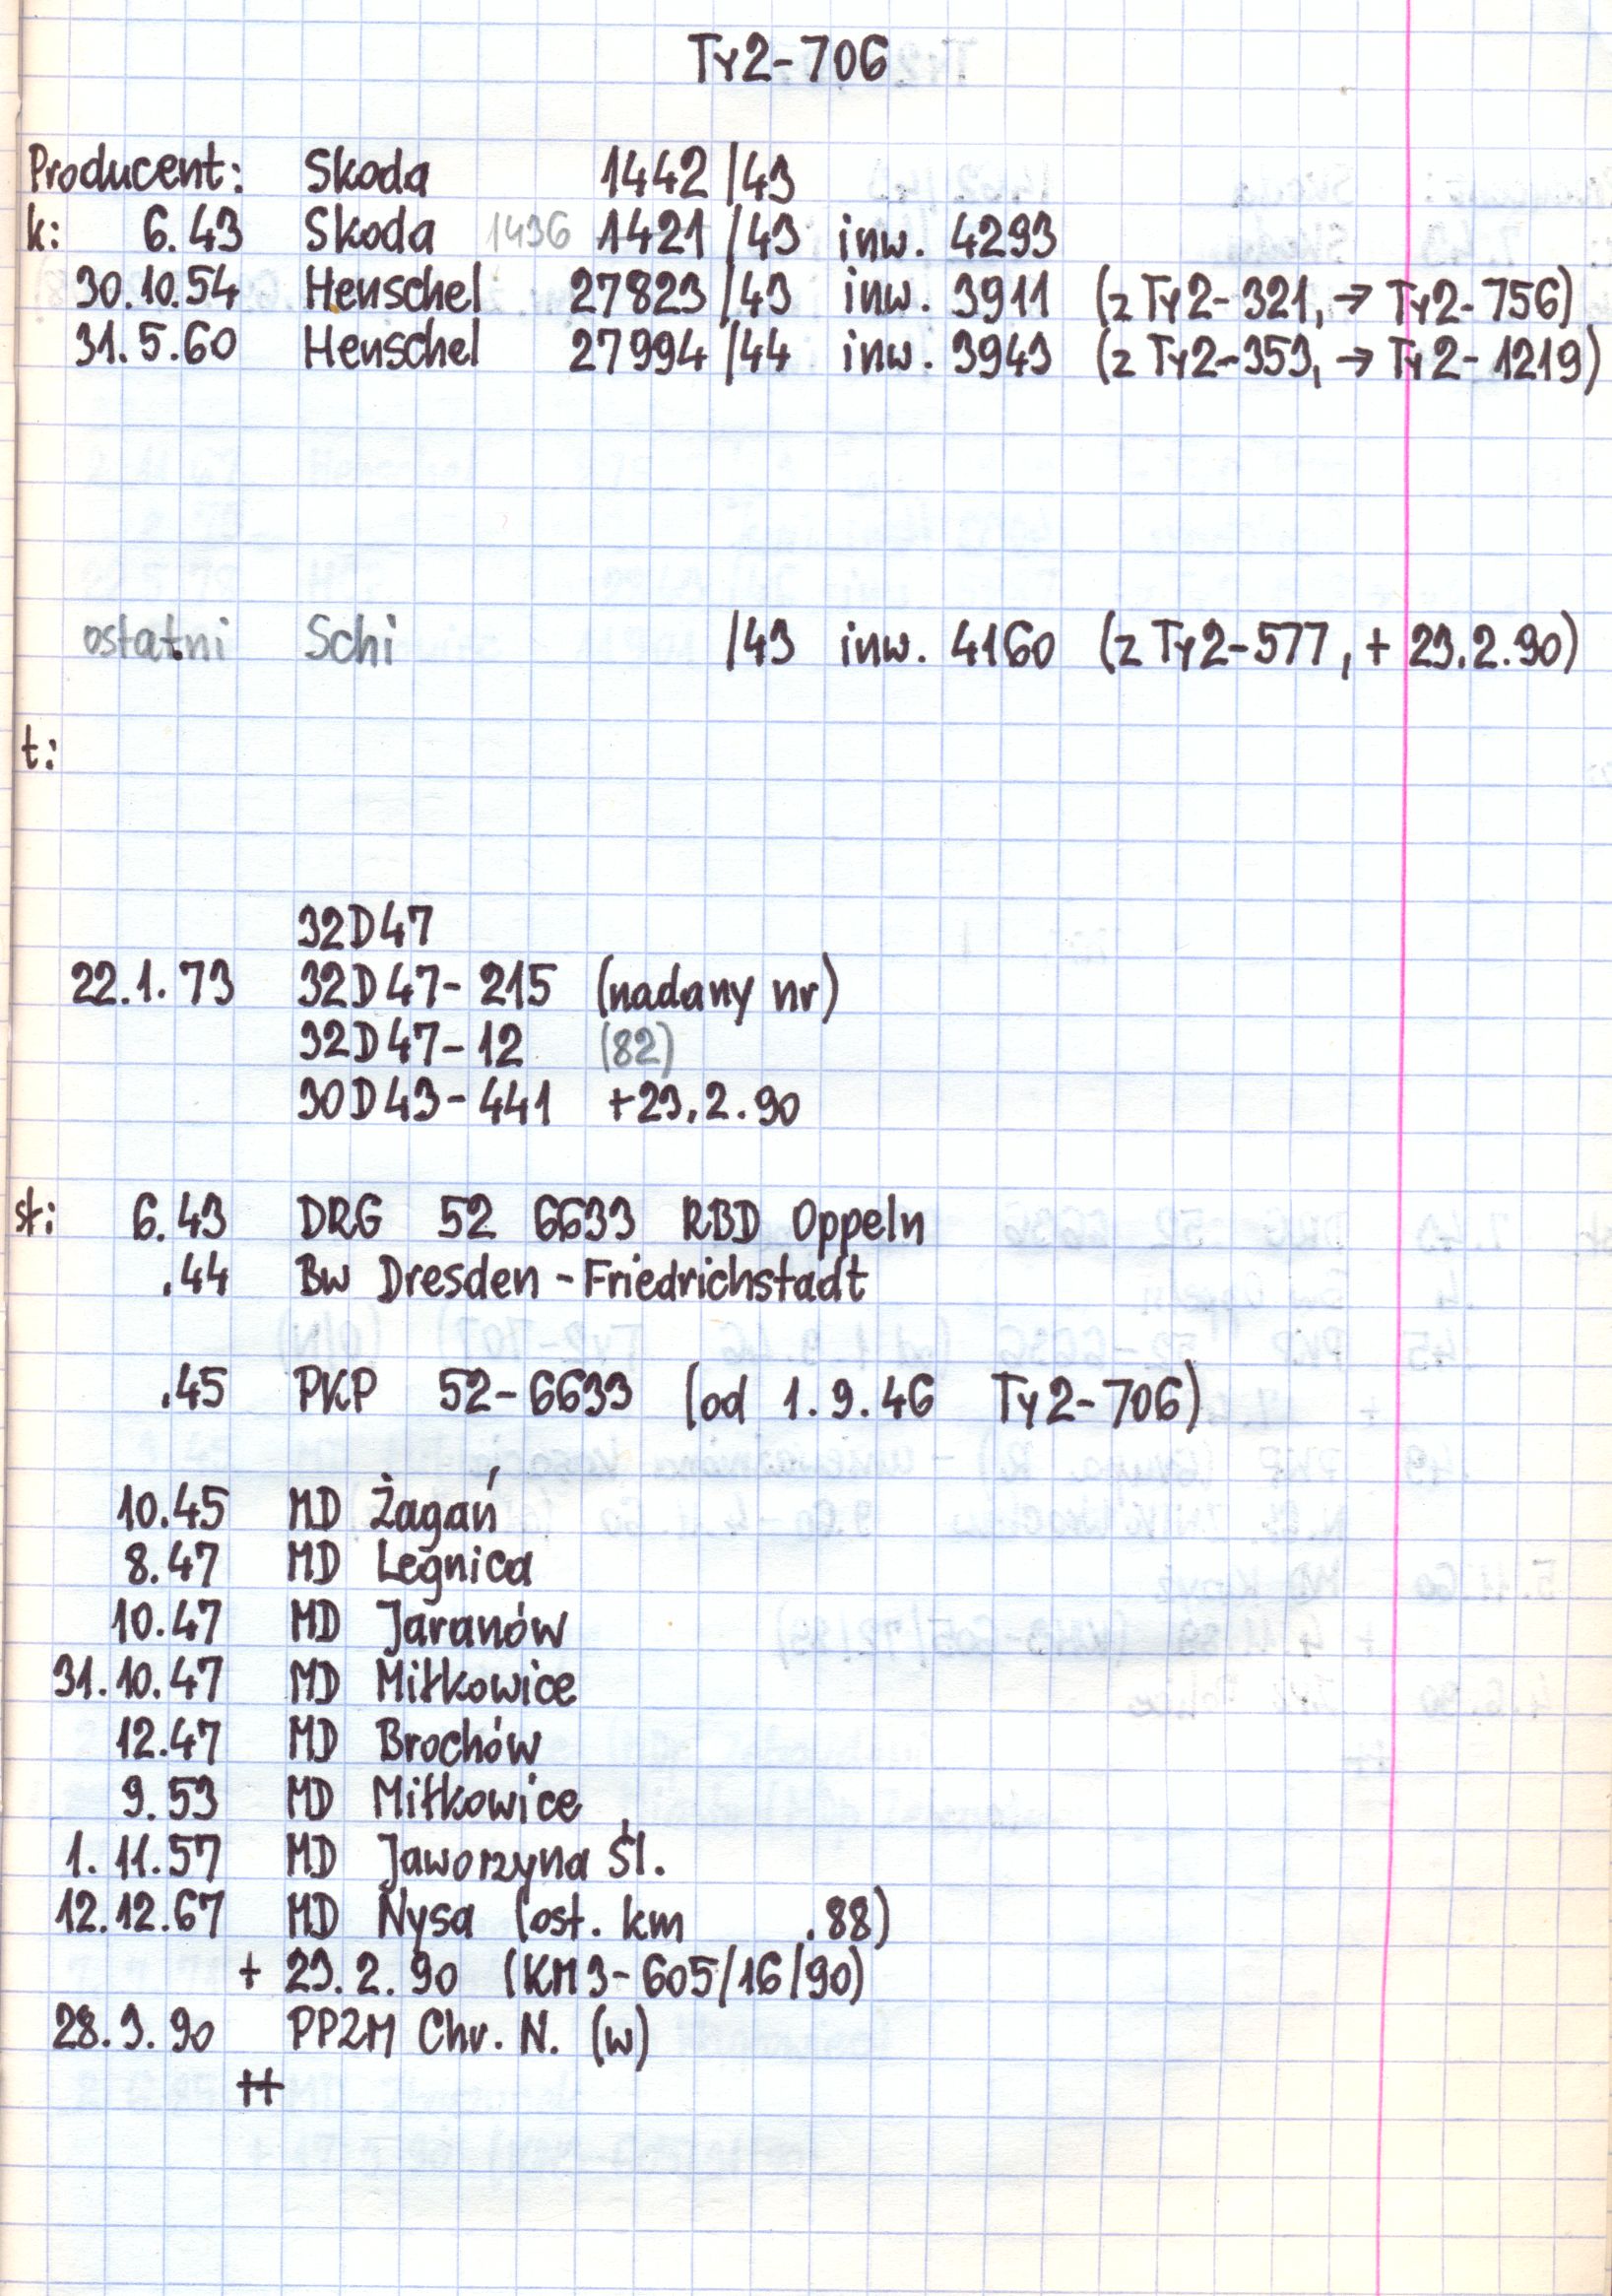 Ty2-706
Producent: Skoda 1442/43
k: 6.43 Skoda 1436 1421/43 inw. 4293
30.10.54 Henschel 27823/43 inw. 3911 (z Ty2-321, → Ty2-756)
31.5.60 Henschel 27994/44 inw. 3943 (z Ty2-353, → Ty2-1219)
ostatni Schi /43 inw. 4160 (z Ty2-577, + 23.2.90)
t:
32D47
22.1.73 32D47-215 (nadany nr)
32D47-12 (82)
30D43-441 +23.2.90
st: 6.43 DRG 52 6633 RBD Oppeln
.44 Bw Dresden-Friedrichstadt
.45 PKP 52-6633 (od 1.9.46 Ty2-706)
10.45 MD Żagań
8.47 MD Legnica
10.47 MD Jaranów
31.10.47 MD Miłkowice
12.47 MD Brochów
9.53 MD Miłkowice
1.11.57 MD Jaworzyna Śl.
12.12.67 MD Nysa (ost. km .88)
+ 23.2.90 (KM3-605/16/90)
28.3.90 PPZM Chr. N. (w)
++